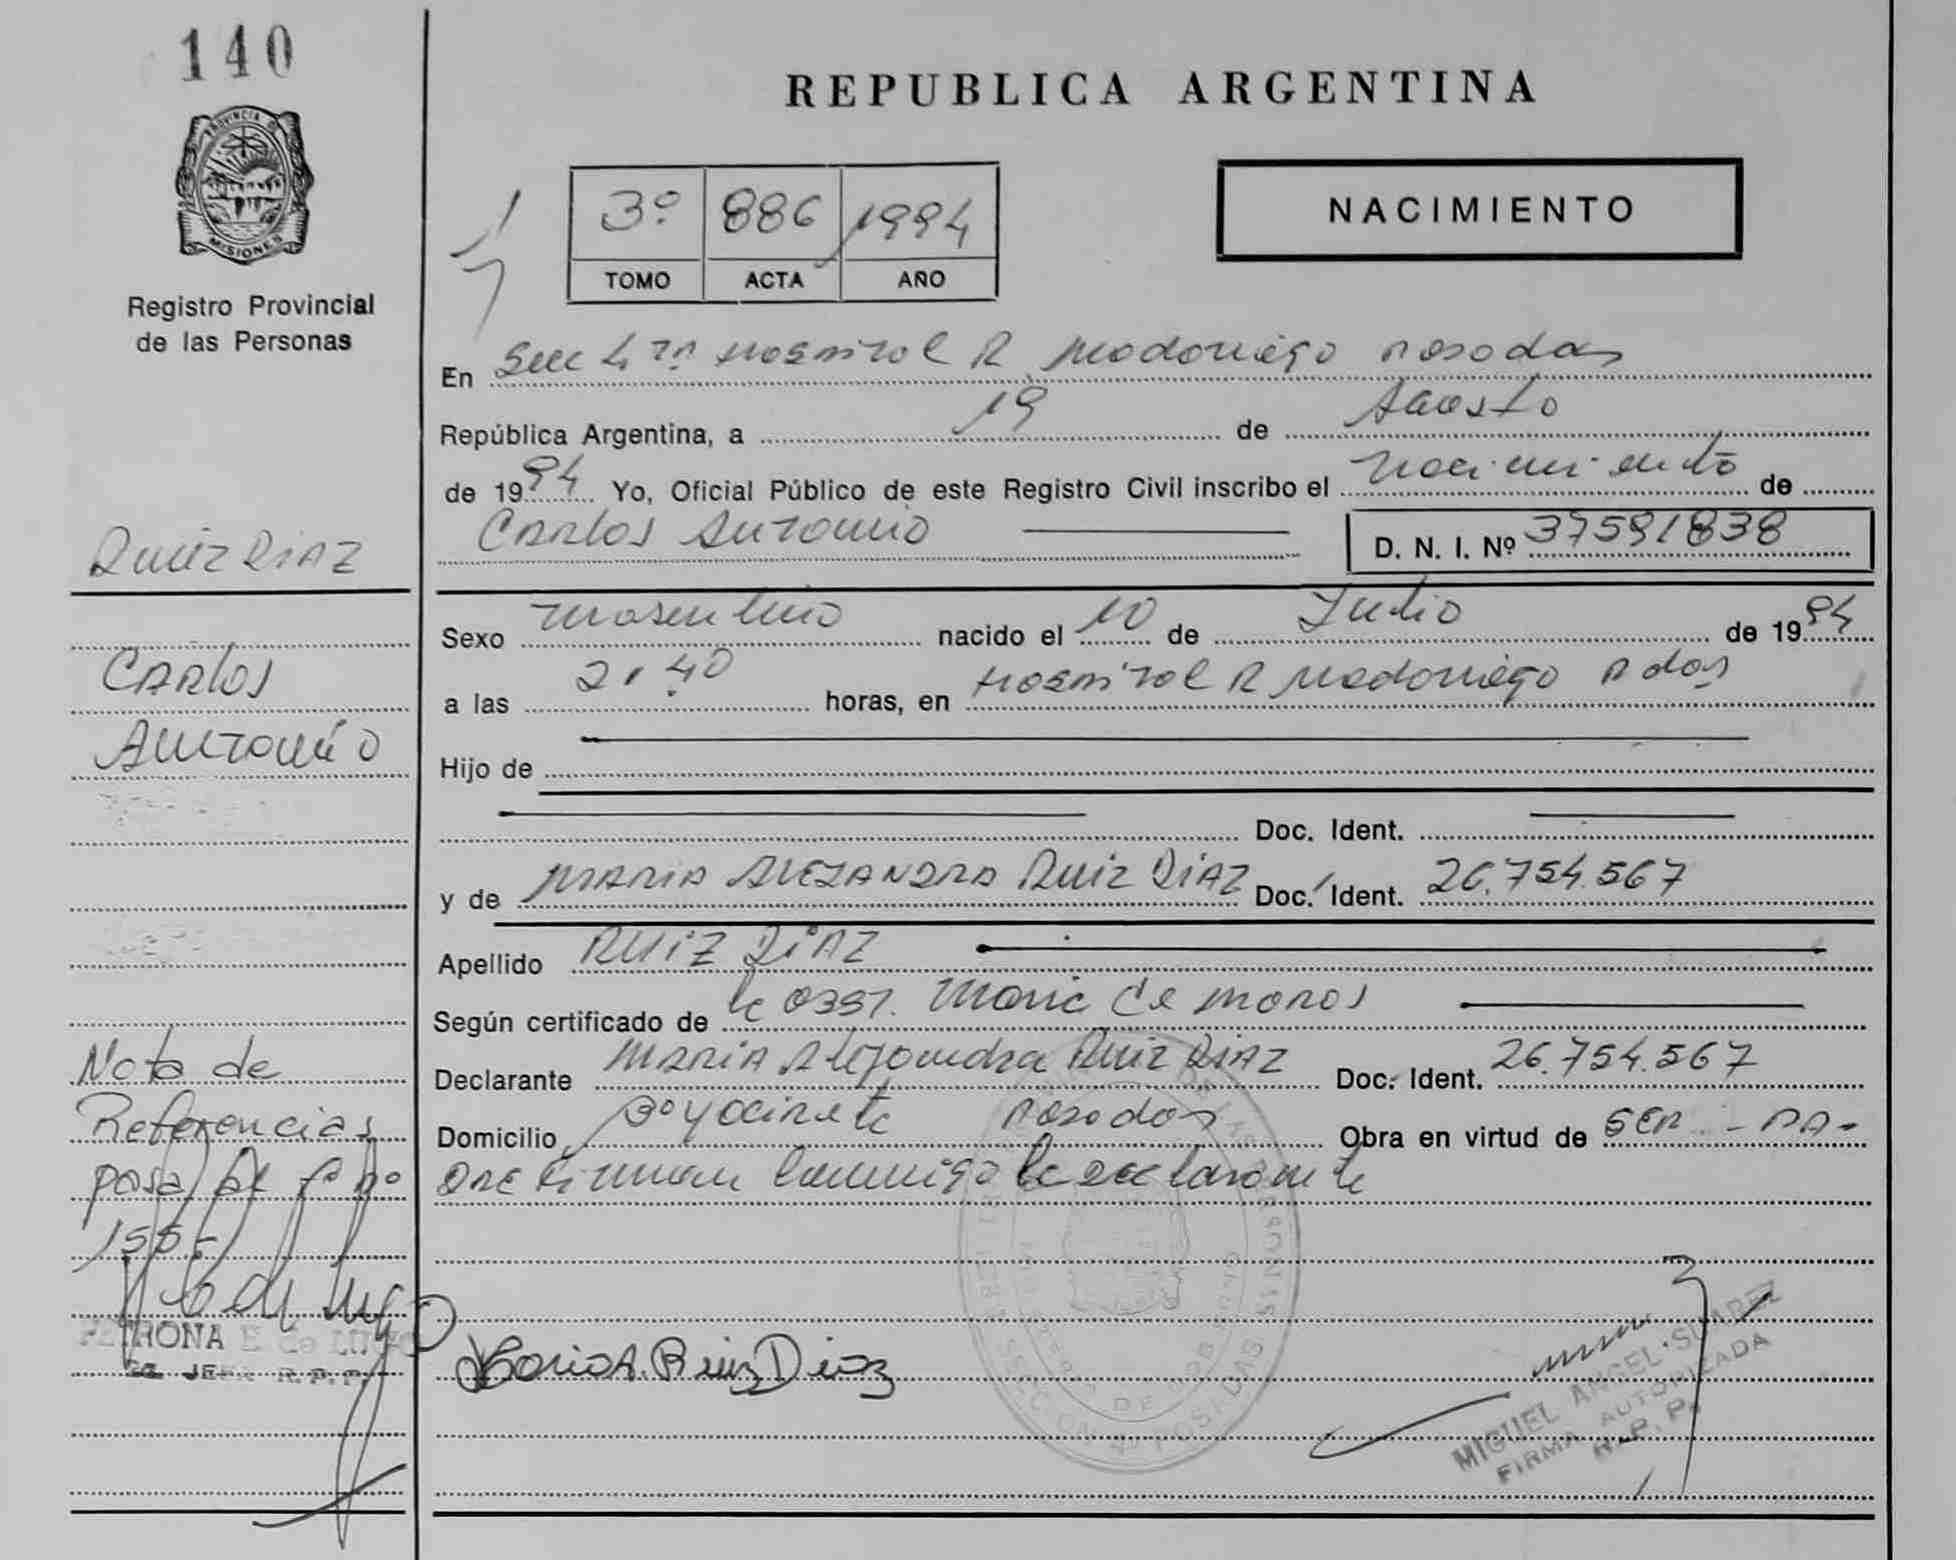 140
PROVINCIA DE
MISIONES
Registro Provincial
de las Personas
REPUBLICA ARGENTINA
NACIMIENTO
3º 886 1994
TOMO ACTA AÑO
En Secc 4ta Hospital R Madariaga Posadas
República Argentina, a 19 de Agosto
de 1994 Yo, Oficial Público de este Registro Civil inscribo el nacimiento de
Carlos Antonio D. N. I. Nº 37591838
Sexo masculino nacido el 10 de Julio de 1994
a las 21.40 horas, en Hospital R Madariaga Pdas
Hijo de
Doc. Ident.
y de MARIA ALEJANDRA RUIZ DIAZ Doc. Ident. 26.754.567
Apellido RUIZ DIAZ
Según certificado de la obst. Maria de
Declarante MARIA Alejandra Ruiz DIAZ Doc. Ident. 26.754.567
Domicilio Posadas Obra en virtud de SER - PA-
DRE firman conmigo la declarante
Maria A. Ruiz Diaz
MIGUEL ANGEL SUAREZ
FIRMA AUTORIZADA
R. P. P.
SECCION 4ª POSADAS
Ruiz DIAZ
CARLOS
ANTONIO
Nota de
Referencias
pasa al fº nº
155.-
PETRONA E. de LUGO
JEFE R.P.P.